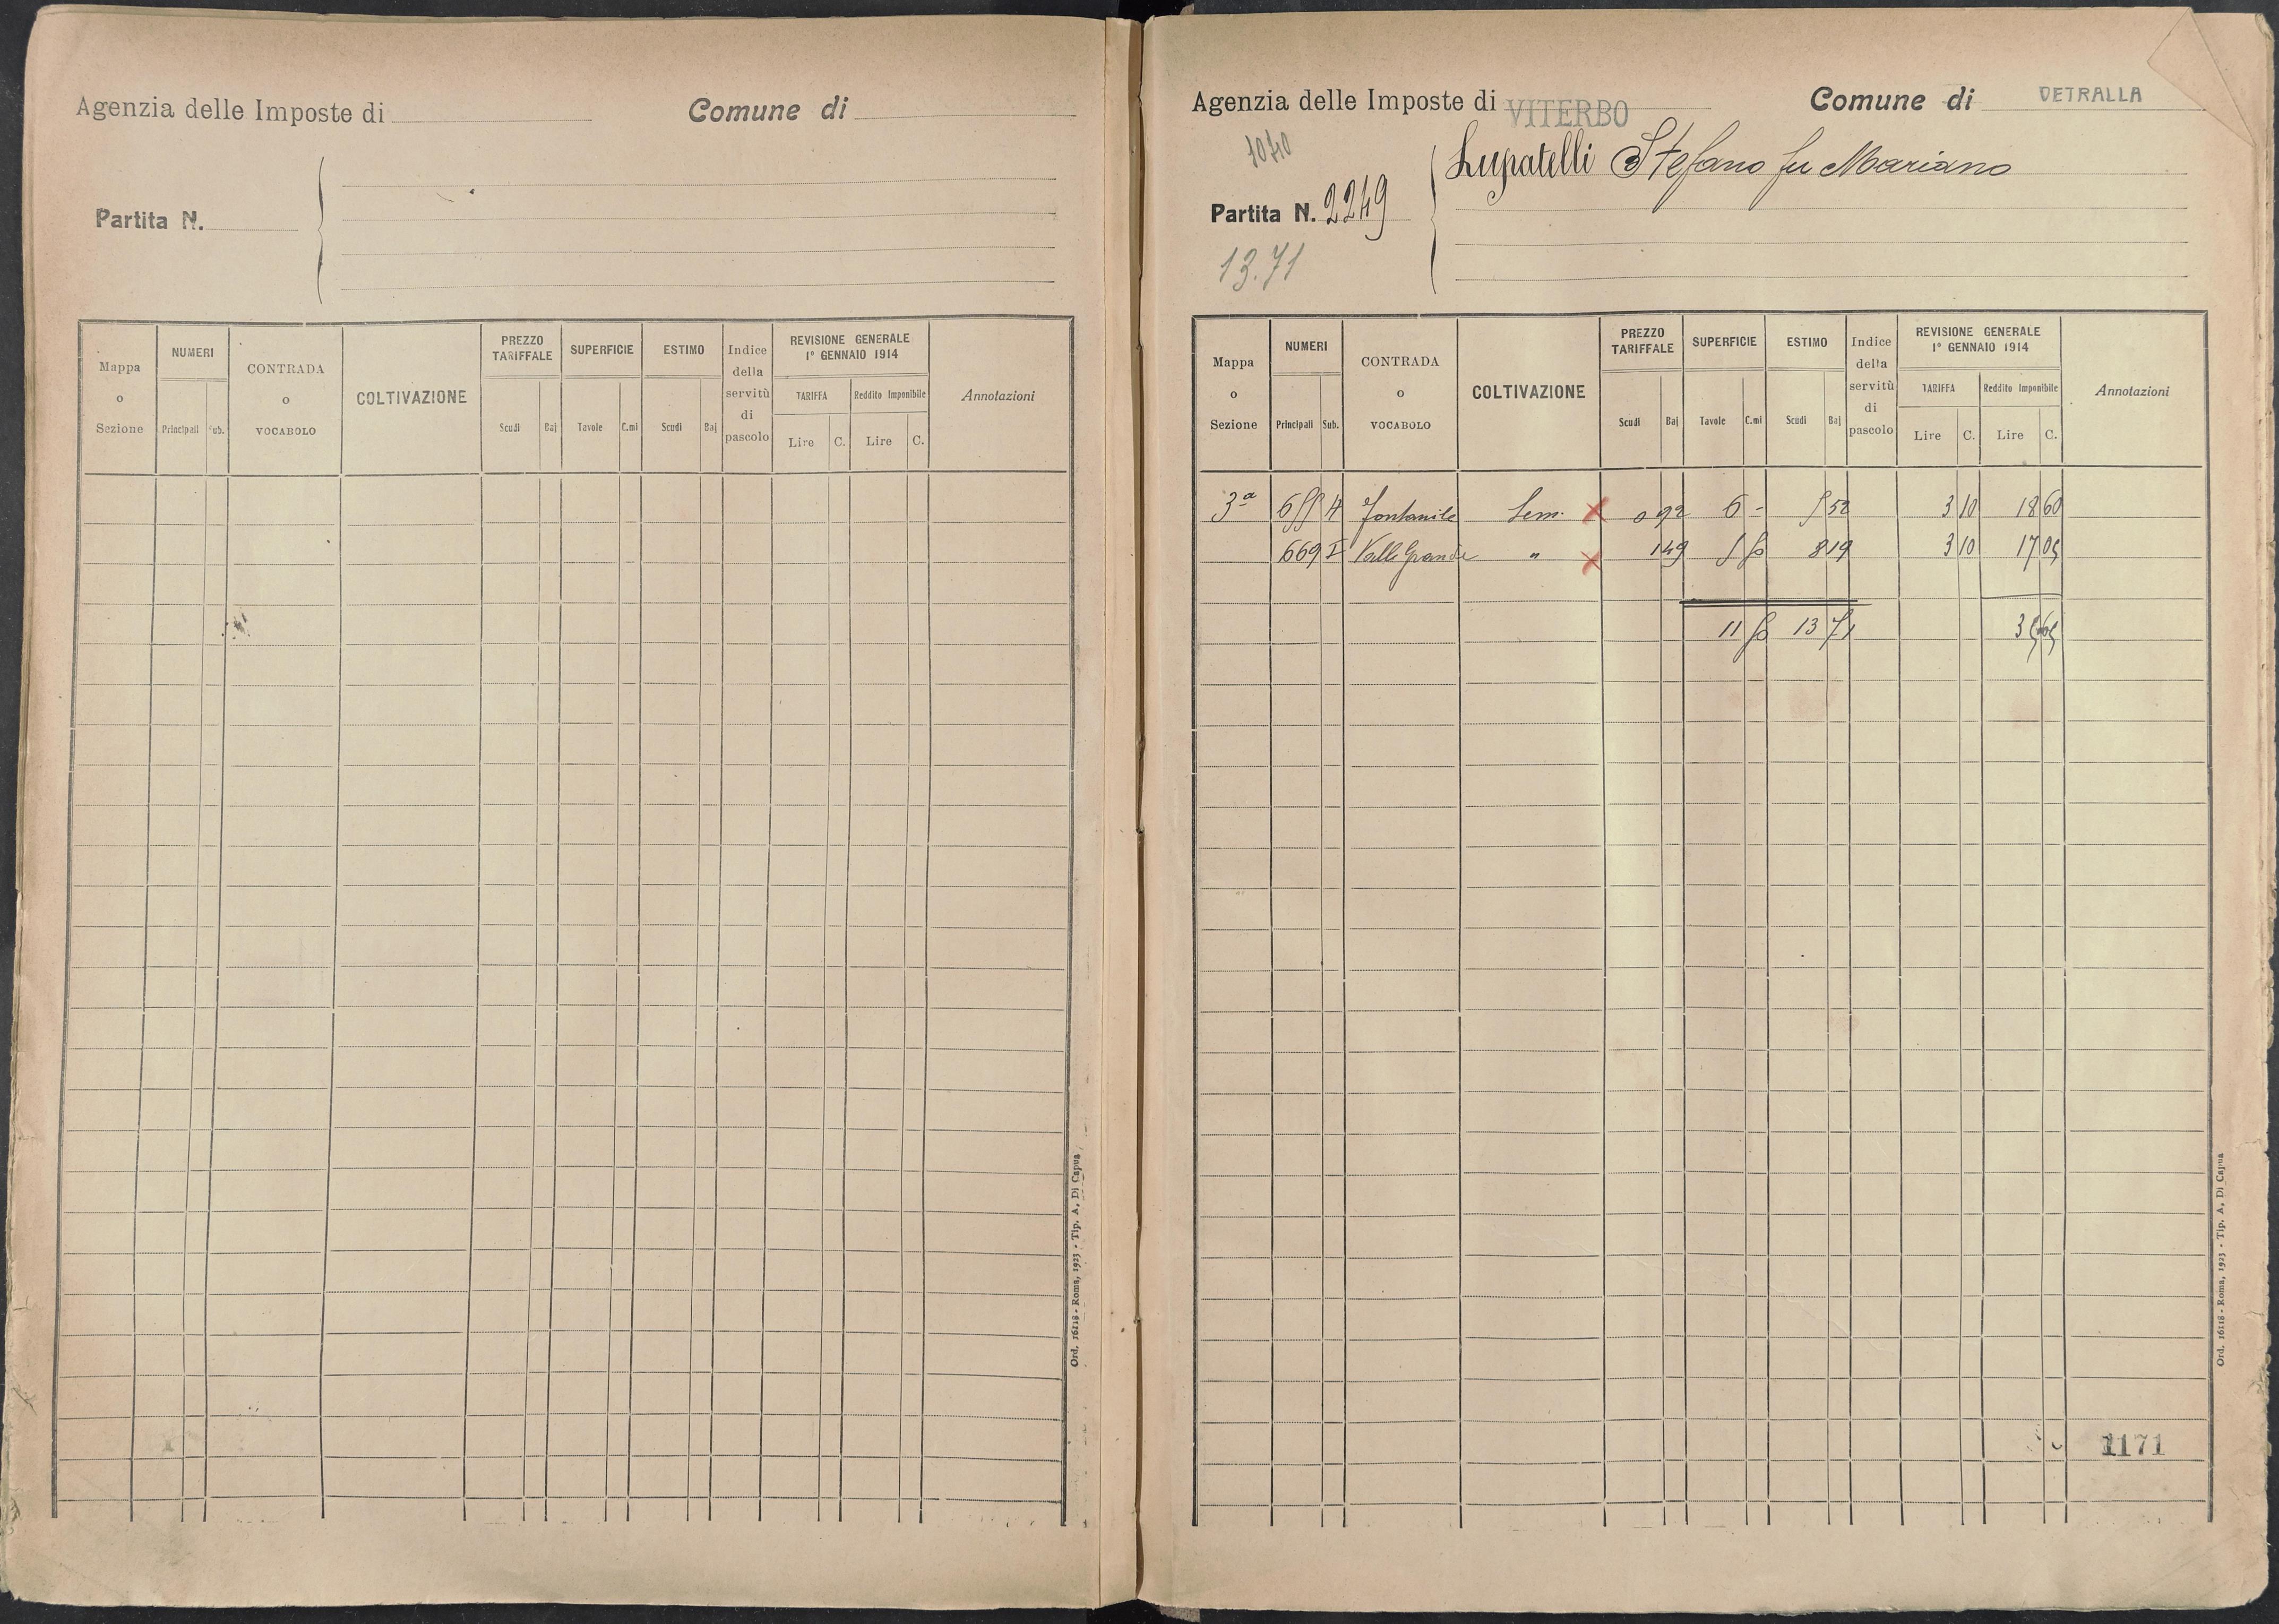 Agenzia delle Imposte di
Comune di
Partita N.
Mappa o Sezione
NUMERI
Principali
Sub.
CONTRADA o VOCABOLO
COLTIVAZIONE
PREZZO TARIFFALE
Scudi
Baj
SUPERFICIE
Tavole
C.mi
ESTIMO
Scudi
Baj
Indice della servitù di pascolo
REVISIONE GENERALE
1° GENNAIO 1914
TARIFFA
Reddito Imponibile
Lire
C.
Lire
C.
Annotazioni
Ord. 16118 - Roma, 1923 - Tip. A. Di Capua
Agenzia delle Imposte di VITERBO
Comune di VETRALLA
1040
Lupatelli Stefano fu Mariano
Partita N. 2249
13.71
Mappa o Sezione
NUMERI
Principali
Sub.
CONTRADA o VOCABOLO
COLTIVAZIONE
PREZZO TARIFFALE
Scudi
Baj
SUPERFICIE
Tavole
C.mi
ESTIMO
Scudi
Baj
Indice della servitù di pascolo
REVISIONE GENERALE
1° GENNAIO 1914
TARIFFA
Reddito Imponibile
Lire
C.
Lire
C.
Annotazioni
3ª 655 H Fontanile Sem. x 0 92 6 - 5 52 3 10 18 60
669 I Valle Grande " x 1 49 5 50 8 19 3 10 17 05
11 50 13 71 35 65
1171
Ord. 16118 - Roma, 1923 - Tip. A. Di Capua